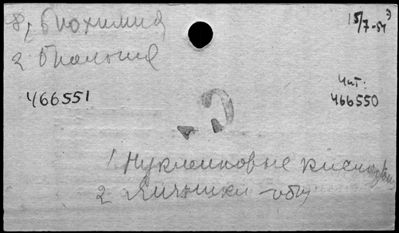 8, биохимия
15/7-54 э
2 биология
Чит.
466551
466550
1 Нуклеиновые кислоты
2 Яичники - общ